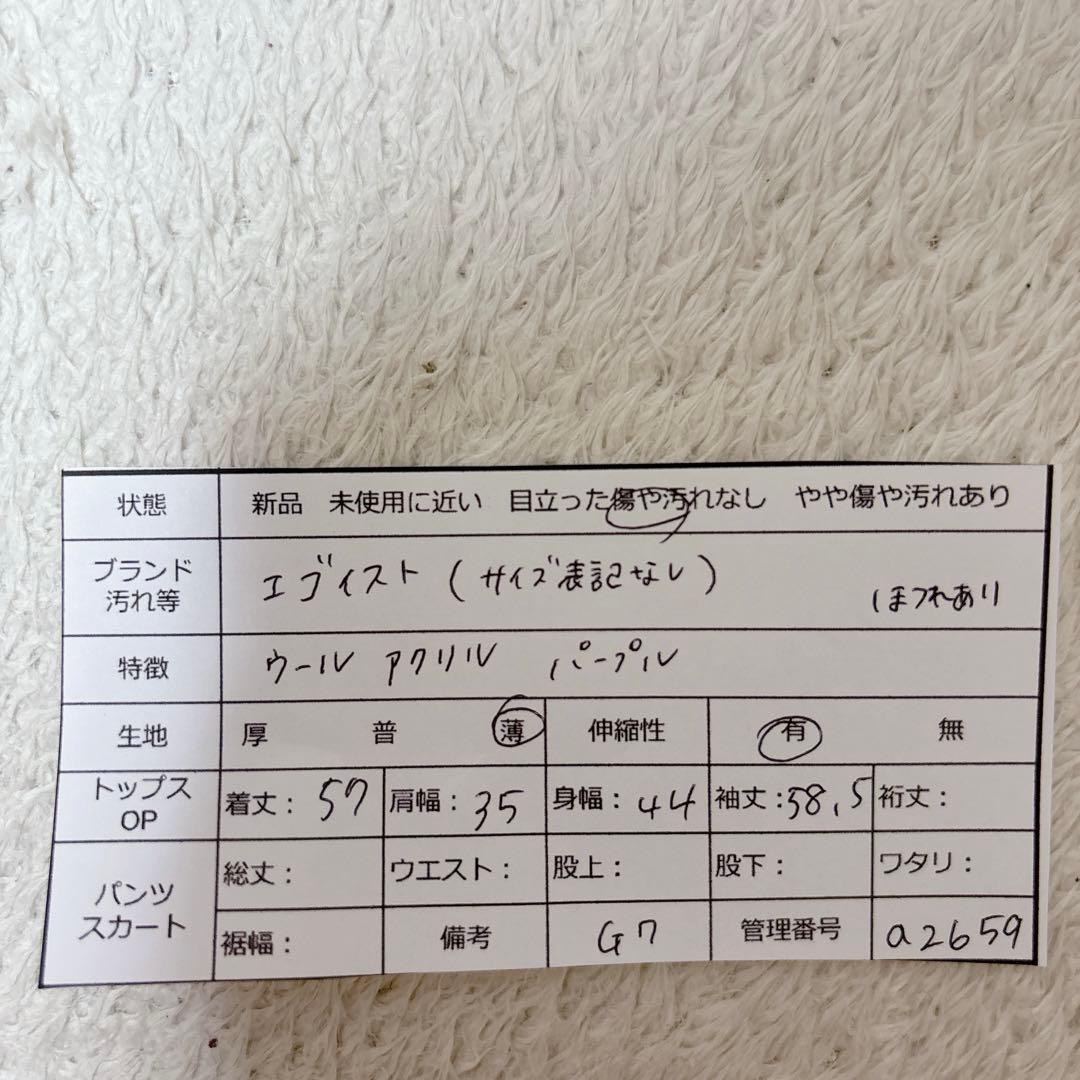 状態 新品 未使用に近い 目立った傷や汚れなし やや傷や汚れあり
ブランド
汚れ等
エゴイスト (サイズ表記なし)
ほつれあり
特徴 ウール アクリル パープル
生地 厚 普 薄 伸縮性 有 無
トップス
OP
着丈: 57 肩幅: 35 身幅: 44 袖丈: 58.5 裄丈:
パンツ
スカート
総丈: ウエスト: 股上: 股下: ワタリ:
裾幅: 備考 G7 管理番号 a2659